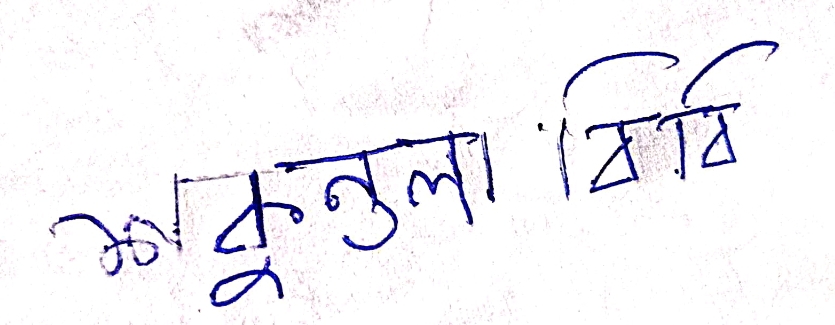 শকুন্তলা বিবি